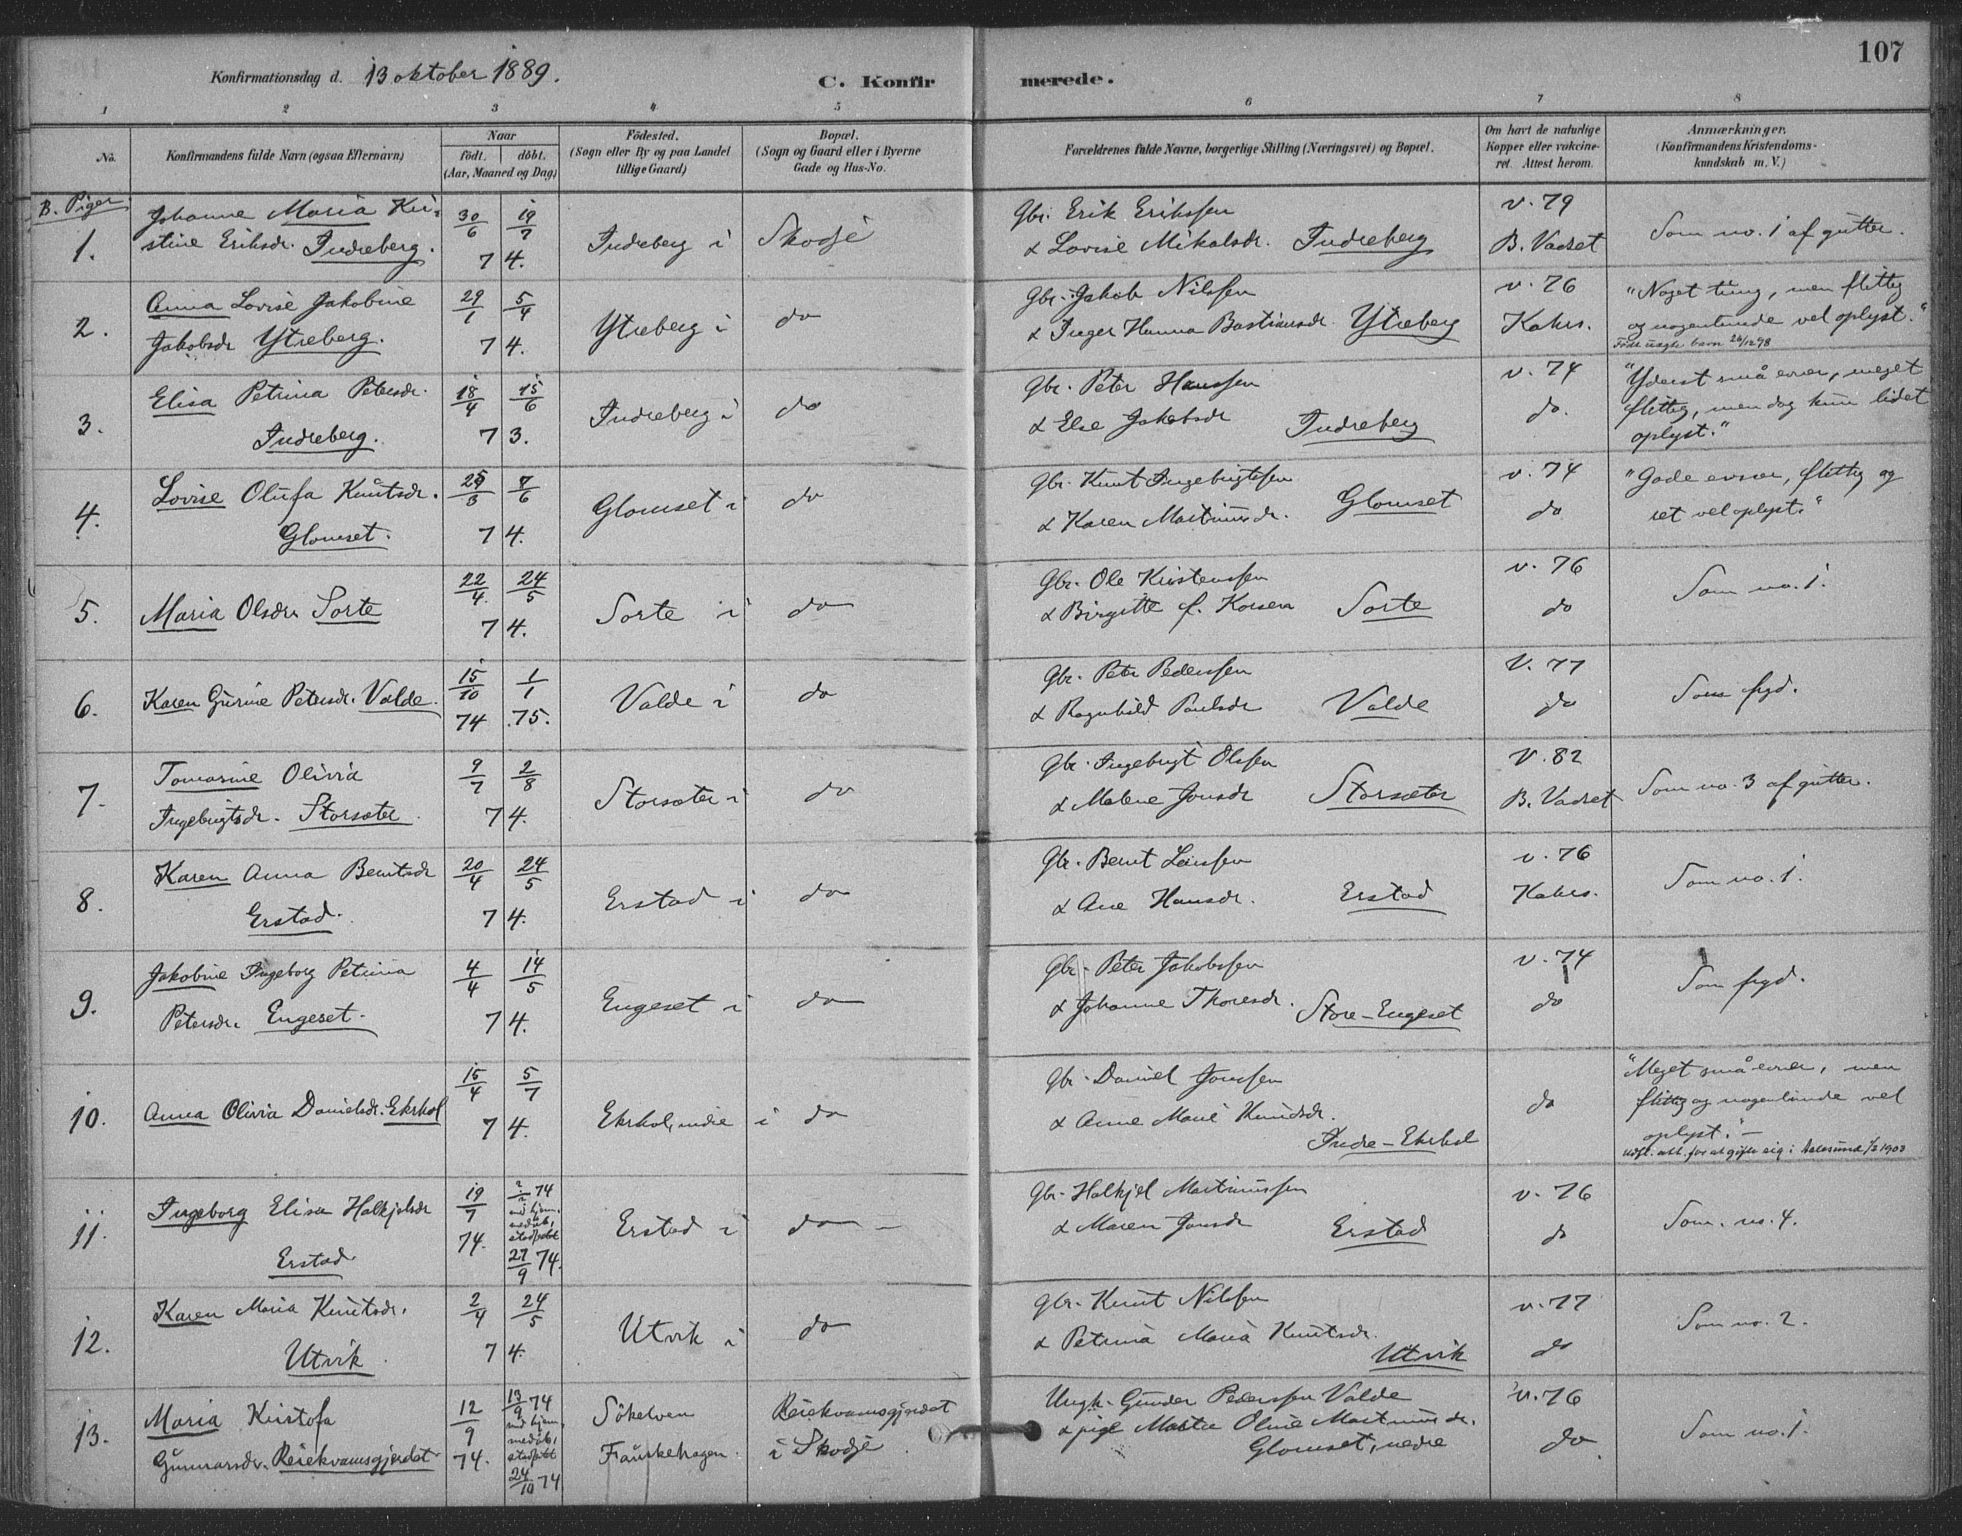 107
Konfirmationsdag d. 13 oktober 1889.
C. Konfir merede.
1 2 3 4 5 6 7 8
No.
Konfirmandens fulde Navn (ogsaa Efternavn)
Naar
födt. döbt.
(Aar, Maaned og Dag)
Födested.
(Sogn eller By og paa Landet
tillige Gaard)
Bopæl.
(Sogn og Gaard eller i Byerne
Gade og Hus-No.
Forældrenes fulde Navne, borgerlige Stilling (Næringsvei) og Bopæl.
Om havt de naturlige
Kopper eller vakcine-
ret. Attest herom.
Anmærkninger.
(Konfirmandens Kristendoms-
kundskab m. V.)
B. Piger
1.
Johanne Maria Kri-
stine Eriksdr. Indreberg.
30/6 19/7
74.
Indreberg i
Skodje
Gbr. Erik Erikssen
& Lovise Mikalsdr. Indreberg
v. 79
B. Vadset
Som no. 1 af gutter.
2.
Anna Lovise Jakobine
Jakobsdr Ytreberg.
29/1 5/4
74.
Ytreberg i
do
Gbr. Jakob Nilssen
& Inger Hanna Bastiansdr. Ytreberg
v. 76
Kahrs.
"Noget tung, men flittig
og nogenlunde vel oplyst."
Födt uægte barn 26/12 98
3.
Elisa Petrina Petersdr.
Indreberg.
18/4 15/6
73.
Indreberg i
do
Gbr. Peter Hanssen
& Else Jakobsdr Indreberg
v. 74
do.
"Yderst små evner, meget
flittig, men dog kun lidet
oplyst."
4.
Lovise Olufa Knutsdr.
Glomset.
25/3 7/6
74.
Glomset i
do
Gbr. Knut Ingebrigtssen
& Karen Martinusdr. Glomset
v. 74
do
"Gode evner, flittig og
ret vel oplyst."
5.
Maria Olsdr. Sorte
22/4. 24/5
74.
Sorte i
do
Gbr. Ole Kristenssen
& Birgitte f. Korsen Sorte
v. 76
do
Som no. 1.
6.
Karen Gurine Petersdr. Valde.
15/10 1/1
74 .75.
Valde i
do
Gbr. Peter Pederssen
& Ragnhild Paulsdr Valde
v. 77
do
Som frgd.
7.
Tomasine Olivia
Ingebrigtsdr. Storsæter
9/7 2/8
74.
Storsæter i
do
Gbr. Ingebrigt Olssen
& Malene Jonsdr Storsæter
v. 82
B. Vadset
Som no. 3 af gutter.
8.
Karen Anna Berntsdr
Erstad.
20/4 24/5
74.
Erstad i
do
Gbr. Bernt Larssen
& Ane Hansdr. Erstad
v. 76
Kahrs.
Som no. 1.
9.
Jakobine Ingeborg Petrina
Petersdr. Engeset.
4/4 14/5
74.
Engeset i
do
Gbr. Peter Jakobssen
& Johanne Thoresdr. Store-Engeset
v. 74
do
Som frgd.
10.
Anna Olivia Danielsdr. Ekrhol
15/4 5/7
74.
Ekrhol, indre i
do
Gbr. Daniel Jonssen
& Anne Marie Knudsdr.
Indre-Ekrhol
do
"Meget små evner, men
flittig og nogenlunde vel
oplyst." -
Udst. att. for at gifte sig i Aalesund 1/2 1903
11.
Ingeborg Elisa Halkjelsdr
Erstad
19/7
74.
74
hjem-
medöb,
stadfæstet
27/9 74.
Erstad i
do -
Gbr. Halkjel Martinussen
& Maren Jonsdr Erstad
v. 76
do
Som. no. 4.
12.
Karen Maria Knutsdr.
Utvik
2/4 24/5
74.
Utvik i
do
Gbr. Knut Nilssen
& Petrina Maria Knutsdr.
Utvik
v. 77
do
Som no. 2.
13.
Maria Kristofa
Gunnarsdr. Reiekvamsgjerdet
12/9
74.
13/9 74
ved hjem-
medöb,
stadfæstet
24/10 74
Sökelven
Frauskehagen.
Reiekvamsgjerdet
i Skodje
Ungk. Gunder Pederssen Valde
& pige Marta Oline Martinusdr.
Glomset, nedre
v. 76
do
Som no. 1.